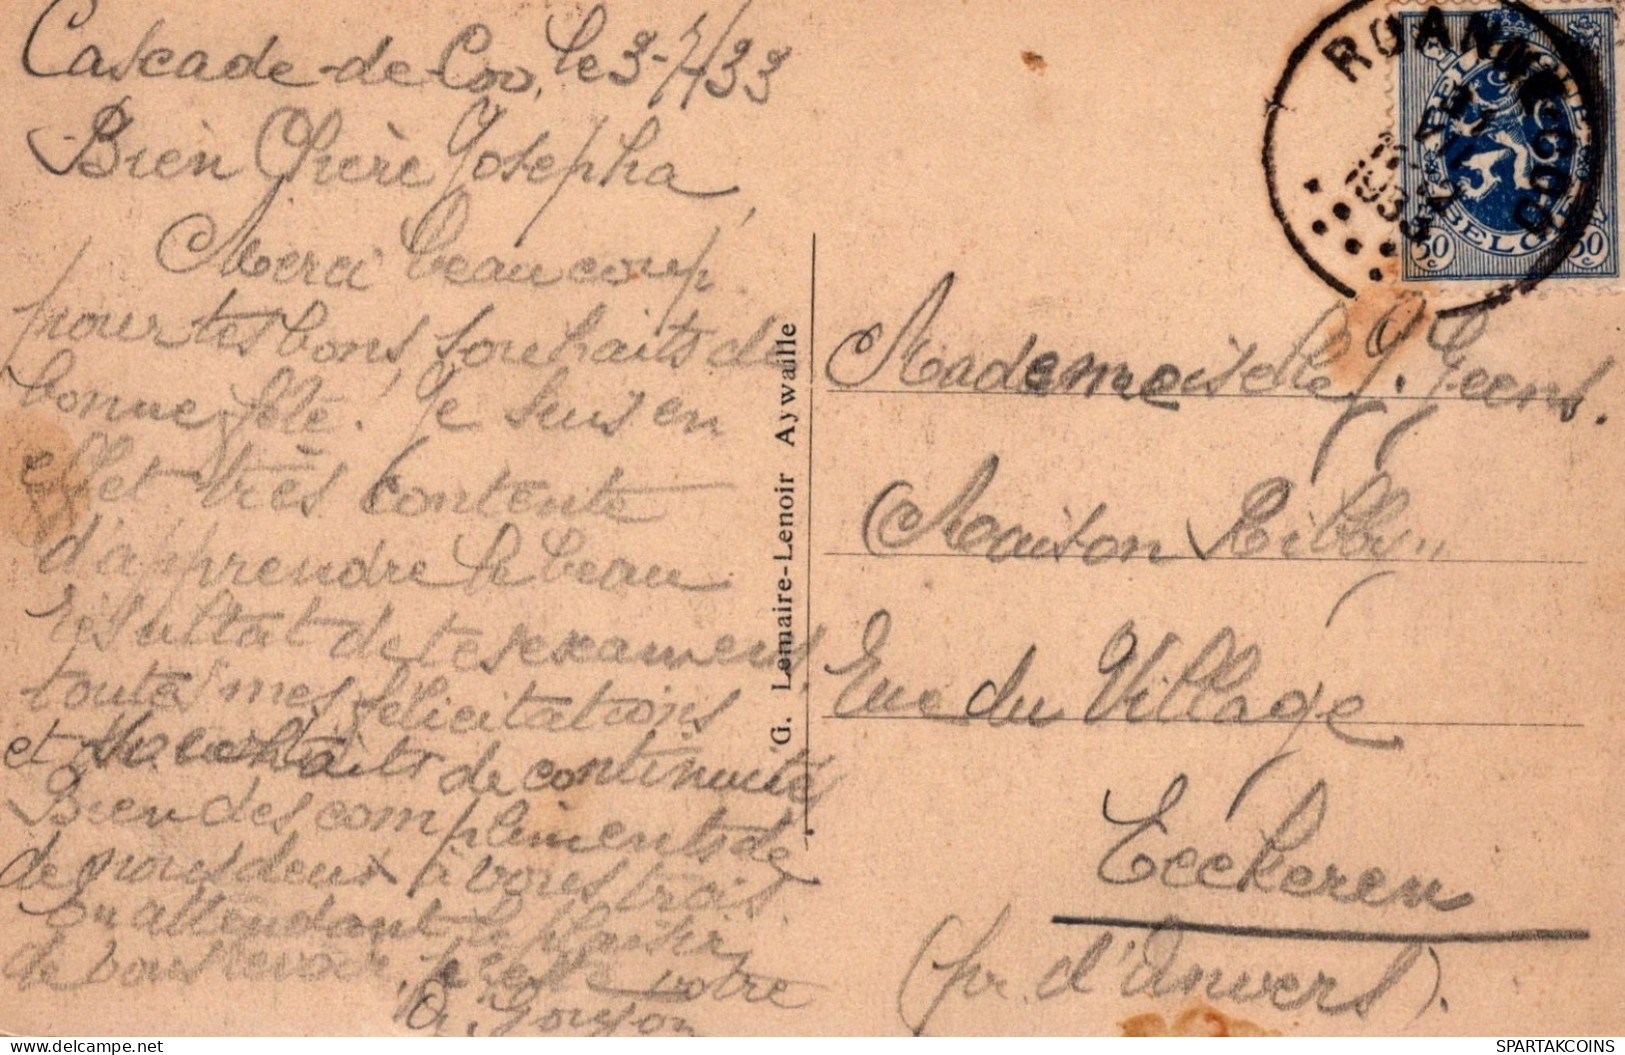 Cascade-de-Coo, le 3-7/33
Bien Chère Josepha,
Merci beaucoup
pour tes bons souhaits de
bonne fête. Je suis en
effet très contente
d'apprendre le beau
résultat de tes examens,
toutes mes félicitations
et souhaits de continuité
Bien des compliments de
de nous deux à vous trois
En attendant le plaisir
de vous revoir, je reste votre
G. Lemaire-Lenoir Aywaille
ROANNE-COO
1933
BELGIE
BELGIQUE
50 c
50 c
Mademoiselle J. Geens.
Maison "Ribby"
Rue du Village
Eeckeren
(pr. d'Anvers).
delcampe.net
SPARTAKCOINS